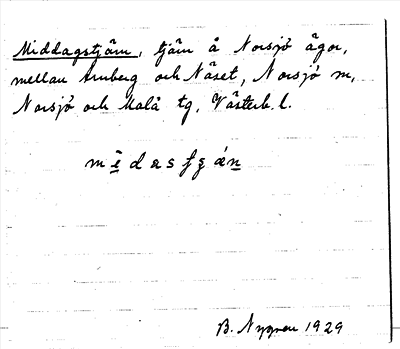 Middagstjärn, tjärn å Norsjö ägor,
mellan Arnberg och Näset, Norsjö sn,
Norsjö och Malå tg, Västerb. l.
B. Nygren 1929